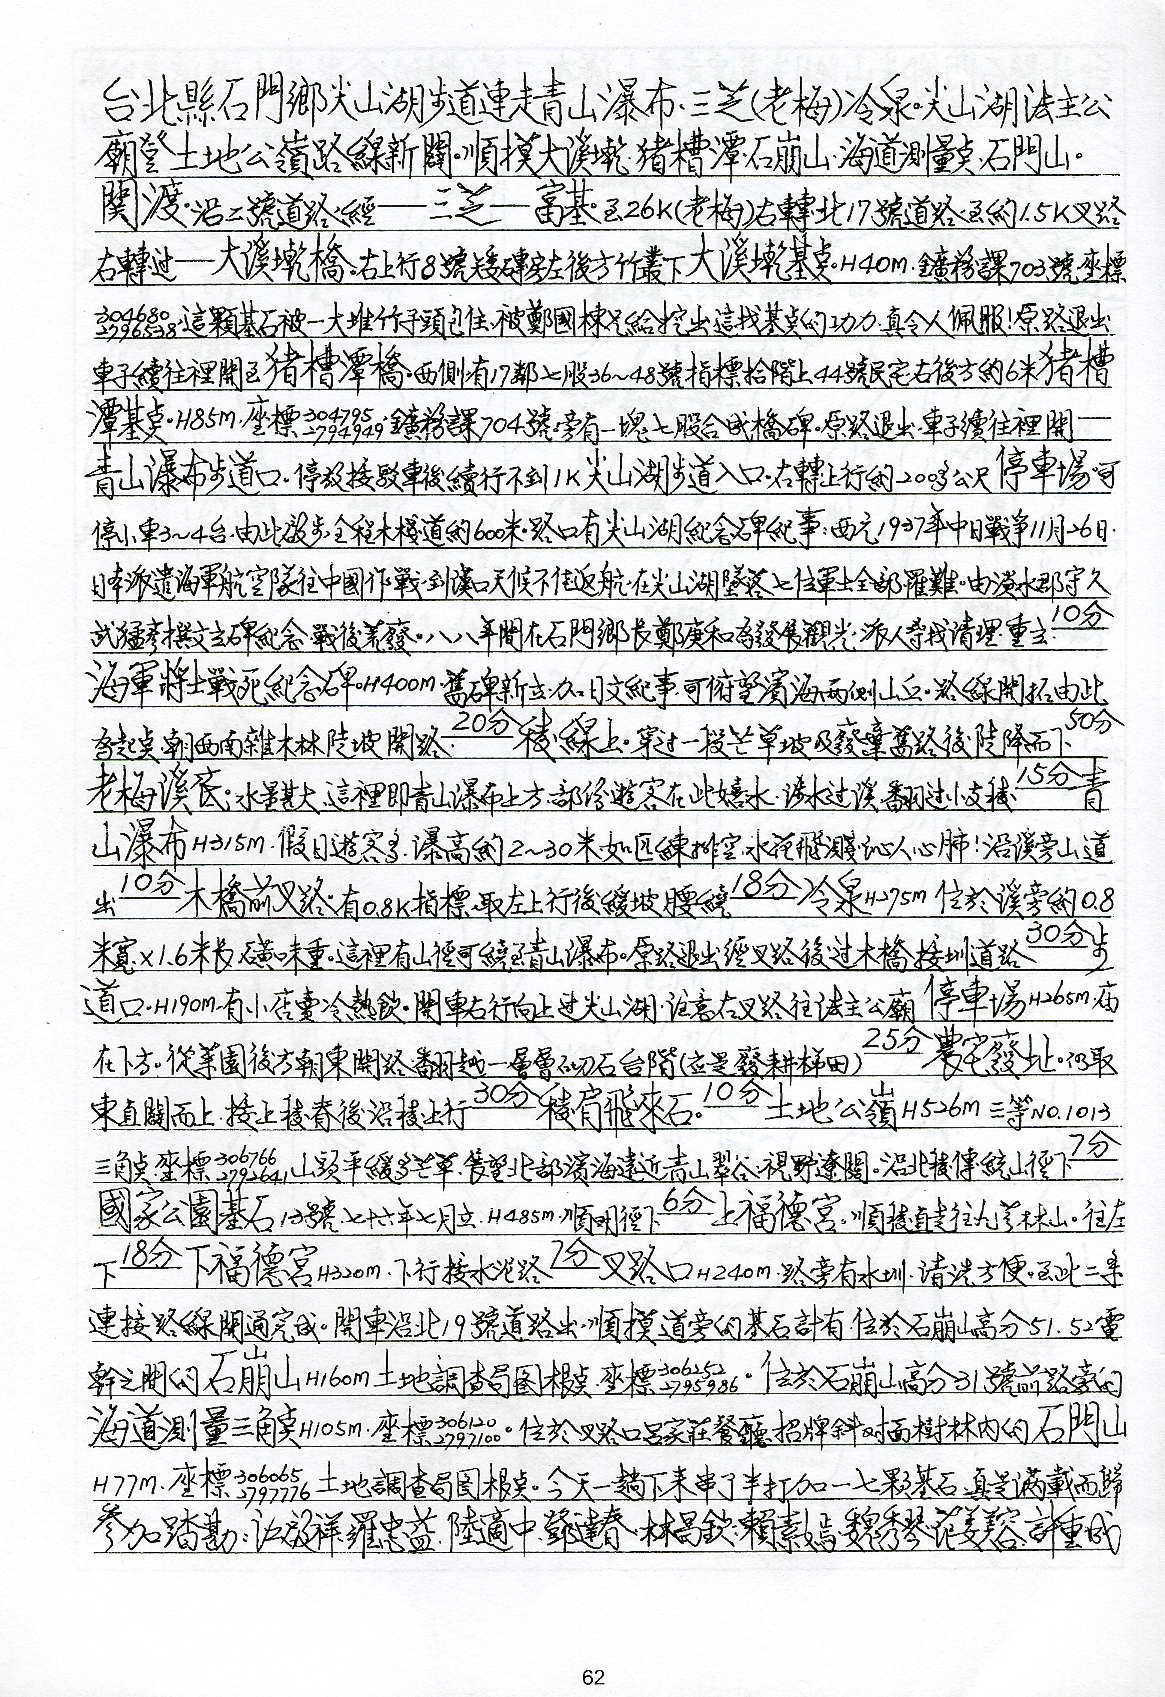 台北縣石門鄉尖山湖步道連走青山瀑布.三芝(老梅)冷泉。尖山湖法主公
廟登土地公嶺路線新闢。順摸大溪墘.豬槽潭石崩山.海道測量点.石門山。
關渡.沿二號道路經──三芝─富基.至26K(老梅)右轉北17號道路.至約1.5K叉路
右轉过─大溪墘橋。右上行8號矮磚旁左後方竹叢下大溪墘基点.H40m.鑛務課703號座標
304680 2796538.這顆基石被一大堆竹子頭包住.被鄭國棟兄給挖出這找基点的功力.真令人佩服!原路退出
車子續往裡開至豬槽潭橋。西側有17鄰七股36~48號指標拾階上44號民宅右後方約6米豬槽
潭基点.H85m.座標304795 2794949.鑛務課704號.旁有一塊.七股合成橋碑。原路退出.車子續往裡開─
青山瀑布步道口。停放接駁車後續行不到1K尖山湖步道入口。右轉上行約200多公尺停車場.可
停小車3~4台.由此啟步.全程木棧道約600米.路口有尖山湖紀念碑紀事:西元1937年中日戰爭11月26日.
日本派遣海軍航空隊往中國作戰.到漢口天候不佳返航.在尖山湖墜落七位軍士全部罹難。由淡水郡守久
武猛彥撰文立碑紀念.戰後荒廢。八八年間在石門鄉長鄭庚和為發展觀光.派人尋找清理.重立.10分
海軍將士戰死紀念碑.H400m.舊碑新立.加日文紀事.可俯望濱海兩側山丘。路線開拓由此
為起点.朝西南雜木林陡坡開路.20分稜線上。穿过一段芒草坡及廢棄舊路後.陡降而下50分
老梅溪底;水量甚大.這裡即青山瀑布上方.部份遊客在此嬉水.涉水过溪翻过小支稜.15分青
山瀑布H315m.假日遊客多.瀑高約2~30米如匹練掛空.水花飛濺沁人心肺!沿溪旁山道
出10分木橋前叉路.有0.8K指標.取左上行後緩坡腰繞18分冷泉H275m位於溪旁約0.8
米寬×1.6米長.磺味重.這裡有山徑可繞至青山瀑布。原路退出經叉路後过木橋接圳道路30分步
道口.H190m.有小店賣冷熱飲。開車右行向上过尖山湖.注意右叉路往法主公廟停車場H265m.廟
在下方。從菜園後方朝東開路.翻越一層層砌石台階(應是廢耕梯田)25分農宅廢址。仍取
東直闢而上.接上稜脊後沿稜上行30分稜肩飛來石。10分土地公嶺H526m三等NO.1013
三角点.座標306766 2792641.山頭平緩多芒草.展望北部濱海遠近青山翠谷.視野遼闊。沿北稜傳統山徑下7分
國家公園基石13號.七十六年七月立.H485m.順明徑下6分上福德宮。順稜直走往九芎林山。往左
下18分下福德宮H320m.下行接水泥路7分叉路口H240m.路旁有水圳.清洗方便。至此二条
連接路線開通完成。開車沿北19號道路出.順摸道旁的基石計有.位於石崩山高分51.52電
幹之間的石崩山H160m土地調查局圖根点.座標306252 2795986。位於石崩山高分31號前路旁的
海道測量三角点H105m.座標306120 2797100。位於叉路口呂家莊餐廳招牌斜对面樹林內的石門山
H77m.座標306065 2797776土地調查局圖根点。今天一趟下來串了半打加一七顆基石.真是滿載而歸
參加踏勘:江啟祥.羅忠益.陸適中.鄧達春.林昌欽.賴素嫣.魏秀琴.范姜容.許重成
62